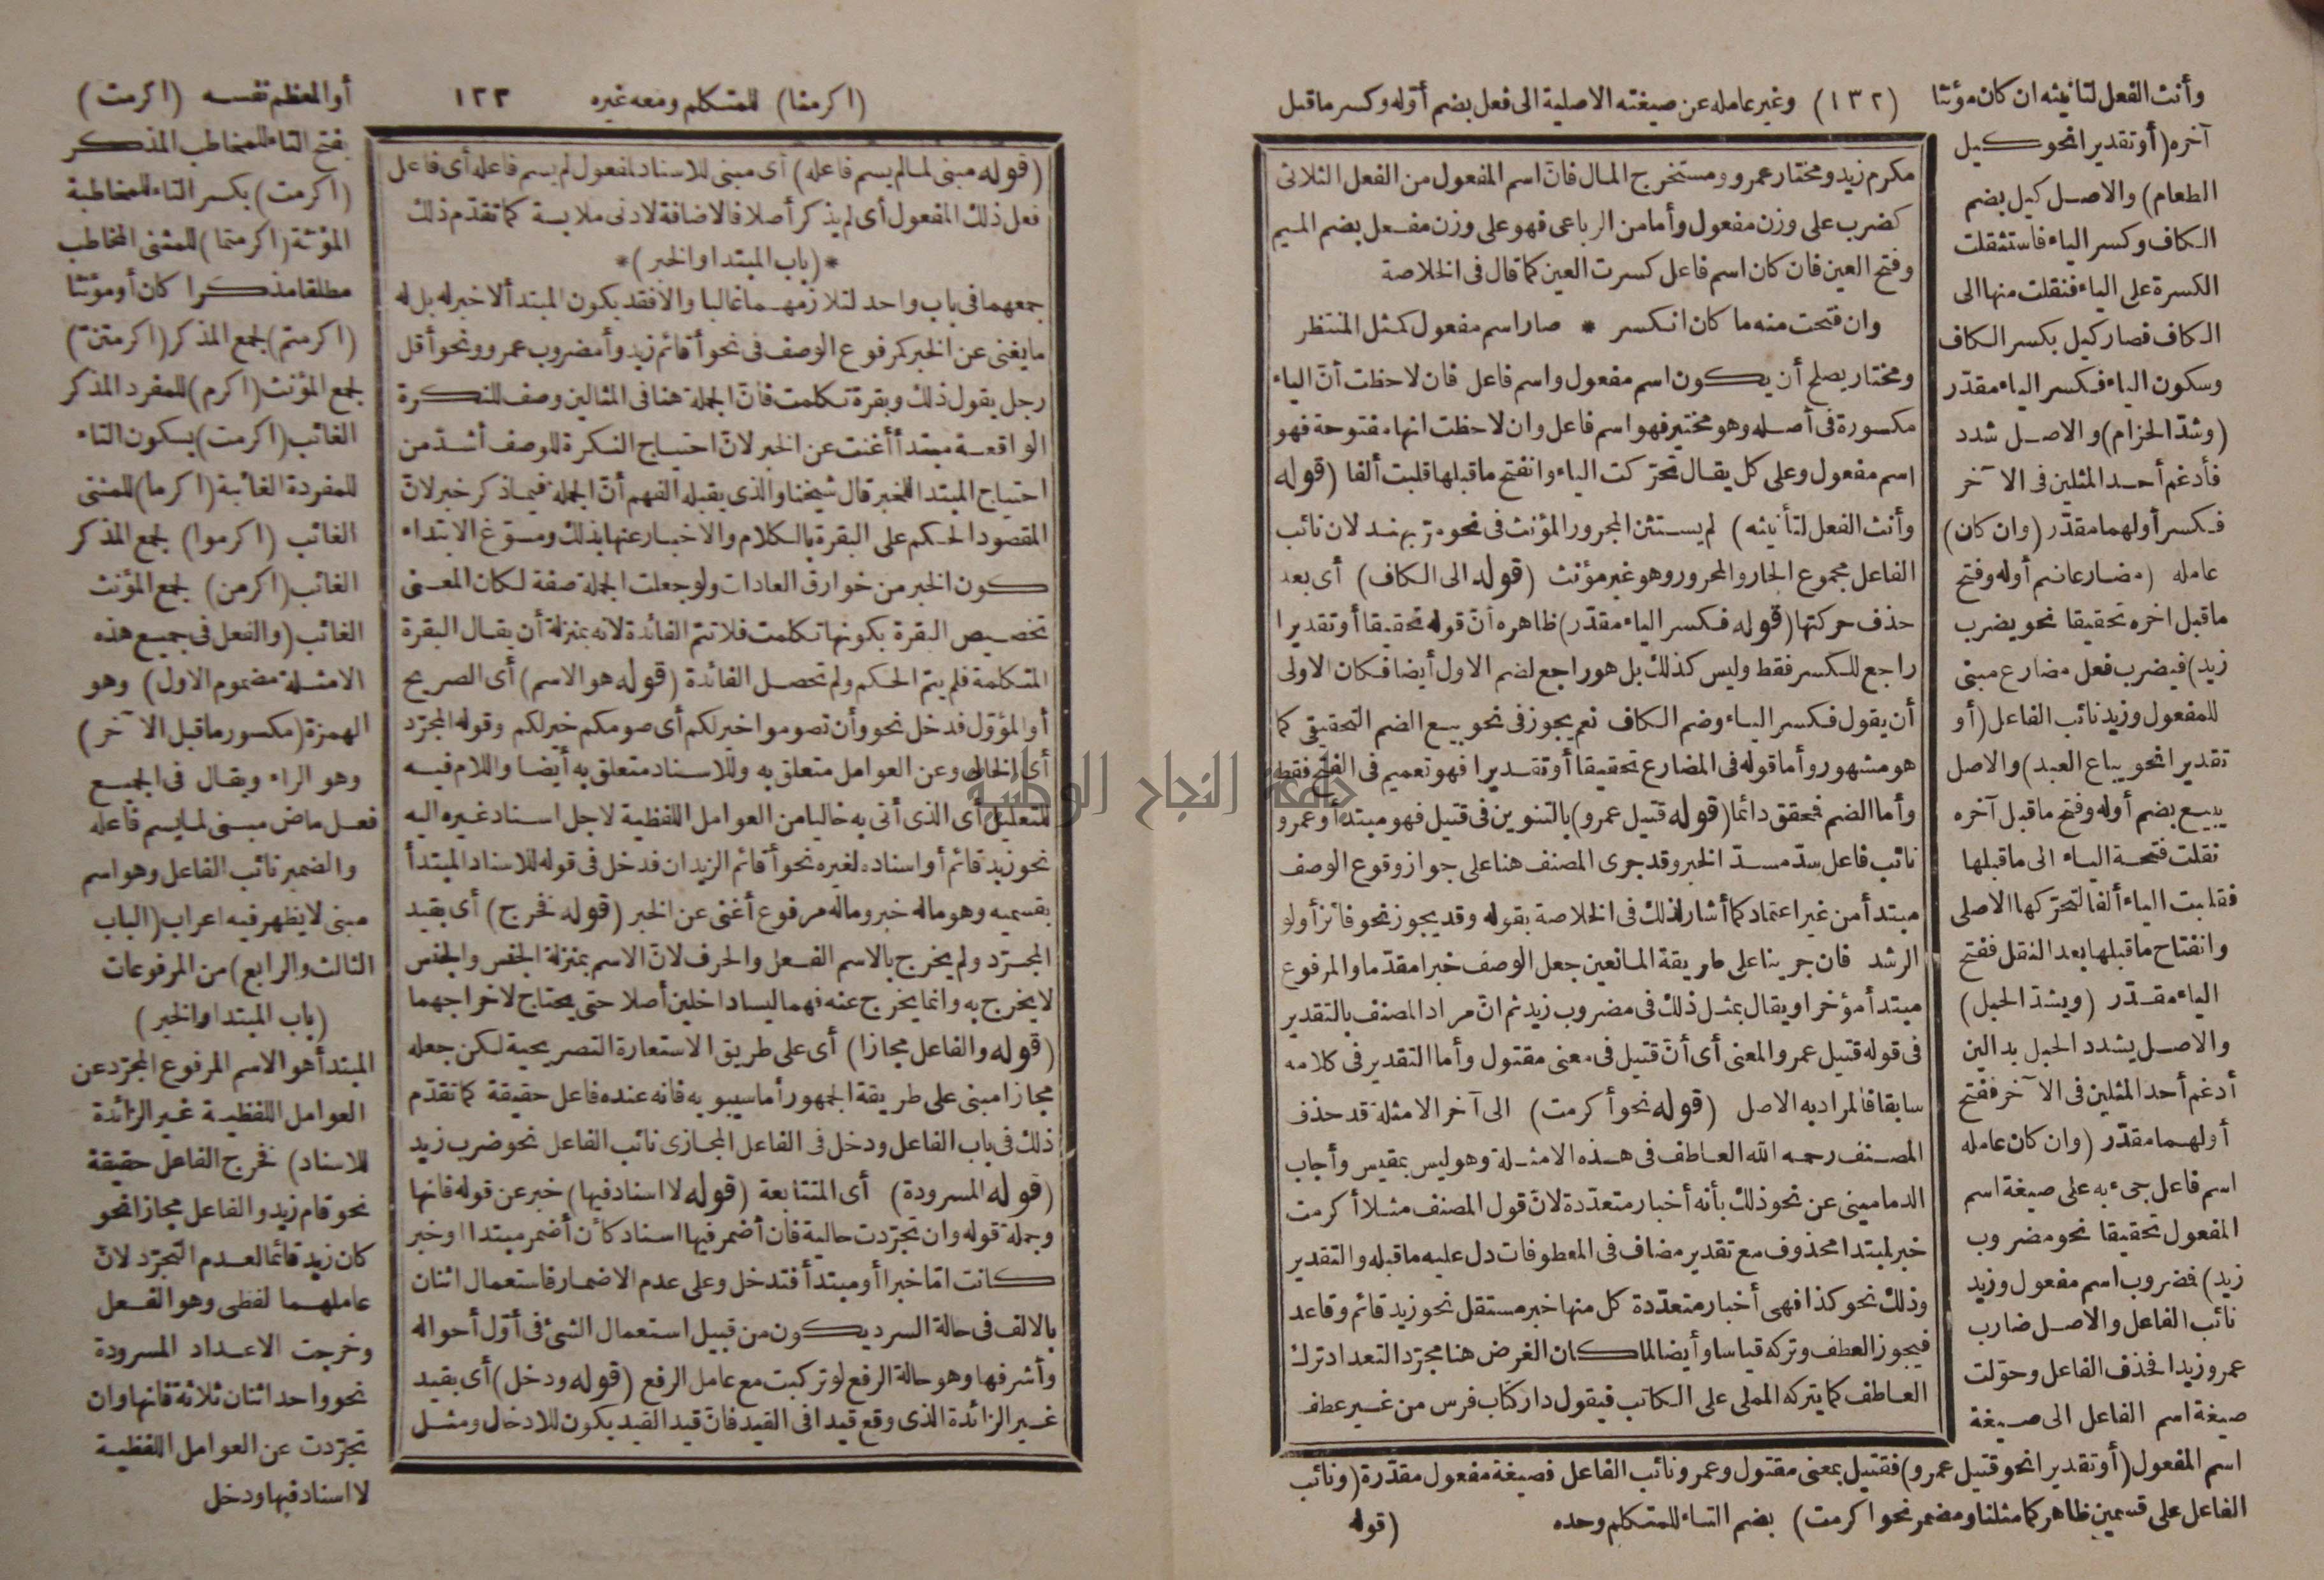 وأنث الفعل لتأنيثه ان كان مؤنثا (١٣٢) وغير عامله عن صيغته الاصلية الى فعل بضم أوّله وكسر ماقبل
آخره (أو تقديرا نحو كيل
الطعام) والاصل كيل بضم
الكاف وكسر الياء فاستثقلت
الكسرة على الياء فنقلت منها الى
الكاف فصار كيل بكسر الكاف
وسكون الياء فكسر الياء مقدّر
(وشدّ الحزام) والاصل شدد
فأدغم أحد المثلين فى الآخر
فكسر أولهما مقدّر (وان كان)
عامله (مضارعا ضم أوله وفتح
ماقبل اخره تحقيقا نحو يضرب
زيد) فيضرب فعل مضارع مبنى
للمفعول وزيد نائب الفاعل (أو
تقديرا نحو يباع العبد) والاصل
يبيع بضم أوله وفتح ماقبل آخره
نقلت فتحة الياء الى ماقبلها
فقلبت الياء ألفا لتحركها الاصلى
وانفتاح ماقبلها بعد النقل ففتح
الياء مقدّر (ويشدّ الحبل)
والاصل يشدد الحبل بدالين
أدغم أحد المثلين فى الآخر ففتح
أولهما مقدّر (وان كان عامله
اسم فاعل جىء به على صيغة اسم
المفعول تحقيقا نحو مضروب
زيد) فمضروب اسم مفعول وزيد
نائب الفاعل والاصل ضارب
عمرو زيدا فحذف الفاعل وحوّلت
صيغة اسم الفاعل الى صيغة
اسم المفعول (أو تقديرا نحو قتيل عمرو) فقتيل بمعنى مقتول وعمرو نائب الفاعل فصيغة مفعول مقدّرة (ونائب
الفاعل على قسمين ظاهر كما مثلنا ومضمر نحو اكرمت) بضم التاء للمتكلم وحده (قوله
مكرم زيد ومختار عمرو ومستخرج المال فانّ اسم المفعول من الفعل الثلاثى
كضرب على وزن مفعول وأما من الرباعى فهو على وزن مفعل بضم الميم
وفتح العين فان كان اسم فاعل كسرت العين كما قال فى الخلاصة
وان فتحت منه ما كان انكسر * صار اسم مفعول كمثل المنتظر
ومختار يصلح أن يكون اسم مفعول واسم فاعل فان لاحظت أنّ الياء
مكسورة فى أصله وهو مختير فهو اسم فاعل وان لاحظت انها مفتوحة فهو
اسم مفعول وعلى كل يقال تحرّكت الياء وانفتح ماقبلها قلبت ألفا (قوله
وأنث الفعل لتأنيثه) لم يستثن المجرور المؤنث فى نحو مرّ بهند لان نائب
الفاعل مجموع الجار والمجرور وهو غير مؤنث (قوله الى الكاف) أى بعد
حذف حركتها (قوله فكسر الياء مقدّر) ظاهره أنّ قوله تحقيقا أو تقديرا
راجع للكسر فقط وليس كذلك بل هو راجع لضم الاول أيضا فكان الاولى
أن يقول فكسر الياء وضم الكاف نعم يجوز فى نحو بيع الضم التحقيقى كما
هو مشهور وأما قوله فى المضارع تحقيقا أو تقديرا فهو تعميم فى الفتح فقط
وأما الضم فمحقق دائما (قوله قتيل عمرو) بالتنوين فى قتيل فهو مبتدأ وعمرو
نائب فاعل سدّ مسدّ الخبر وقد جرى المصنف هنا على جواز وقوع الوصف
مبتدأ من غير اعتماد كما أشار لذلك فى الخلاصة بقوله وقد يجوز نحو فائز أولو
الرشد فان جرينا على طريقة المانعين جعل الوصف خبرا مقدّما والمرفوع
مبتدأ مؤخرا ويقال بمثل ذلك فى مضروب زيد ثم انّ مراد المصنف بالتقدير
فى قوله قتيل عمرو المعنى أى أنّ قتيل فى معنى مقتول وأما التقدير فى كلامه
سابقا فالمراد به الاصل (قوله نحو أكرمت) الى آخر الامثلة قد حذف
المصنف رحمه الله العاطف فى هذه الامثلة وهو ليس بمقيس وأجاب
الدمامينى عن نحو ذلك بأنه أخبار متعدّدة لانّ قول المصنف مثلا أكرمت
خبر لمبتدا محذوف مع تقدير مضاف فى المعطوفات دل عليه ماقبله والتقدير
وذلك نحو كذا فهى أخبار متعدّدة كل منها خبر مستقل نحو زيد قائم وقاعد
فيجوز العطف وتركه قياسا وأيضا لما كان الغرض هنا مجرّد التعداد ترك
العاطف كما يتركه المملى على الكاتب فيقول دار كتاب فرس من غير عطف
(اكرمنا) للمتكلم ومعه غيره ١٣٣ أو المعظم نفسه (اكرمت)
بفتح التاء للمخاطب المذكر
(اكرمت) بكسر التاء للمخاطبة
المؤنثة (اكرمتما) للمثنى المخاطب
مطلقا مذكرا كان أو مؤنثا
(اكرمتم) لجمع المذكر (اكرمتنّ)
لجمع المؤنث (اكرم) للمفرد المذكر
الغائب (اكرمت) بسكون التاء
للمفردة الغائبة (اكرما) للمثنى
الغائب (اكرموا) لجمع المذكر
الغائب (اكرمن) لجمع المؤنث
الغائب (والفعل فى جميع هذه
الامثلة مضموم الاول) وهو
الهمزة (مكسور ماقبل الآخر)
وهو الراء ويقال فى الجميع
فعل ماض مبنى لما لم يسم فاعله
والضمير نائب الفاعل وهو اسم
مبنى لا يظهر فيه اعراب (الباب
الثالث والرابع) من المرفوعات
(باب المبتدا والخبر)
المبتدأ هو الاسم المرفوع المجرّد عن
العوامل اللفظية غير الزائدة
للاسناد) فخرج الفاعل حقيقة
نحو قام زيد والفاعل مجازا نحو
كان زيد قائما لعدم التجرّد لانّ
عاملهما لفظى وهو الفعل
وخرجت الاعداد المسرودة
نحو واحد اثنان ثلاثة فانها وان
تجرّدت عن العوامل اللفظية
لا اسناد فيها ودخل
(قوله مبنى لما لم يسم فاعله) أى مبنى للاسناد لمفعول لم يسم فاعله أى فاعل
فعل ذلك المفعول أى لم يذكر أصلا فالاضافة لادنى ملابسة كما تقدّم ذلك
*(باب المبتدا والخبر)*
جمعهما فى باب واحد لتلازمهما غالبا والا فقد يكون المبتدأ لا خبر له بل له
ما يغنى عن الخبر كمرفوع الوصف فى نحو أقائم زيد وأمضروب عمرو ونحو أقل
رجل يقول ذلك وبقرة تكلمت فانّ الجملة هنا فى المثالين وصف للنكرة
الواقعة مبتدأ أغنت عن الخبر لانّ احتياج النكرة للوصف أشدّ من
احتياج المبتدا للخبر قال شيخنا والذى يقبله الفهم أنّ الجملة فيما ذكر خبر لانّ
المقصود الحكم على البقرة بالكلام والاخبار عنها بذلك ومسوّغ الابتداء
كون الخبر من خوارق العادات ولو جعلت الجملة صفة لكان المعنى
تخصيص البقرة بكونها تكلمت فلا تتم الفائدة لانه بمنزلة أن يقال البقرة
المتكلمة فلم يتم الحكم ولم تحصل الفائدة (قوله هو الاسم) أى الصريح
أو المؤوّل فدخل نحو وأن تصوموا خير لكم أى صومكم خير لكم وقوله المجرّد
أى الخالى وعن العوامل متعلق به وللاسناد متعلق به أيضا واللام فيه
للتعليل أى الذى أتى به خاليا من العوامل اللفظية لاجل اسناد غيره اليه
نحو زيد قائم أو اسناده لغيره نحو أقائم الزيدان فدخل فى قوله للاسناد المبتدأ
بقسميه وهو ماله خبر وماله مرفوع أغنى عن الخبر (قوله فخرج) أى بقيد
المجرّد ولم يخرج بالاسم الفعل والحرف لانّ الاسم بمنزلة الجنس والجنس
لا يخرج به وانما يخرج عنه فهما ليسا داخلين أصلا حتى يحتاج لاخراجهما
(قوله والفاعل مجازا) أى على طريق الاستعارة التصريحية لكن جعله
مجازا مبنى على طريقة الجمهور أما سيبويه فانه عنده فاعل حقيقة كما تقدّم
ذلك فى باب الفاعل ودخل فى الفاعل المجازى نائب الفاعل نحو ضرب زيد
(قوله المسرودة) أى المتتابعة (قوله لا اسناد فيها) خبر عن قوله فانها
وجملة قوله وان تجرّدت حالية فان أضمر فيها اسناد كأن أضمر مبتدا او خبر
كانت امّا خبرا أو مبتدأ فتدخل وعلى عدم الاضمار فاستعمال اثنان
بالالف فى حالة السرد يكون من قبيل استعمال الشئ فى أوّل أحواله
وأشرفها وهو حالة الرفع لو تركبت مع عامل الرفع (قوله ودخل) أى بقيد
غير الزائدة الذى وقع قيدا فى القيد فانّ قيد القيد يكون للادخال ومثل
جامعة النجاح الوطنية